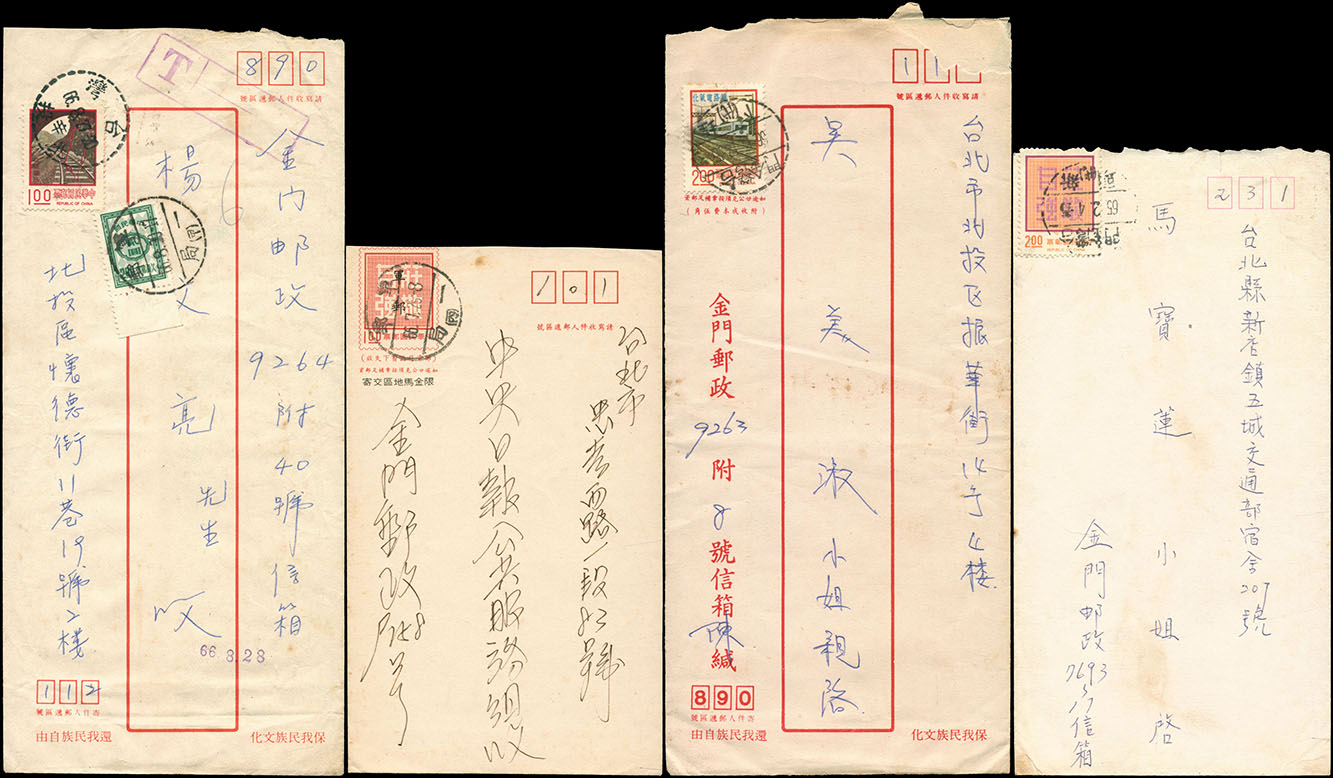 890
請寫收件人郵遞區號
T
台灣
1.00
中華民國郵票
REPUBLIC OF CHINA
金門郵政9264附40號信箱
楊文亮先生收
6
北投區懷德街11巷19號2樓
66.8.28
112
寄件人郵遞區號
還我民族自由
保我民族文化
101
請寫收件人郵遞區號
軍郵
1.00
如遇中獎公
限金馬地區交寄
台北市
忠孝西路一段
中央日報公共服務組收
金門郵政
11
請寫收件人郵遞區號
鐵路電氣化
2.00
(附收成本費伍角)
台北市北投區振華街14号4楼
吳美淑小姐親啟
金門郵政9263附8號信箱陳緘
890
寄件人郵遞區號
還我民族自由
保我民族文化
231
莊敬自強
2.00
65.2.4
台北縣新店鎮五城交通部宿舍207號
馬寶蓮小姐啟
金門郵政7693
信箱